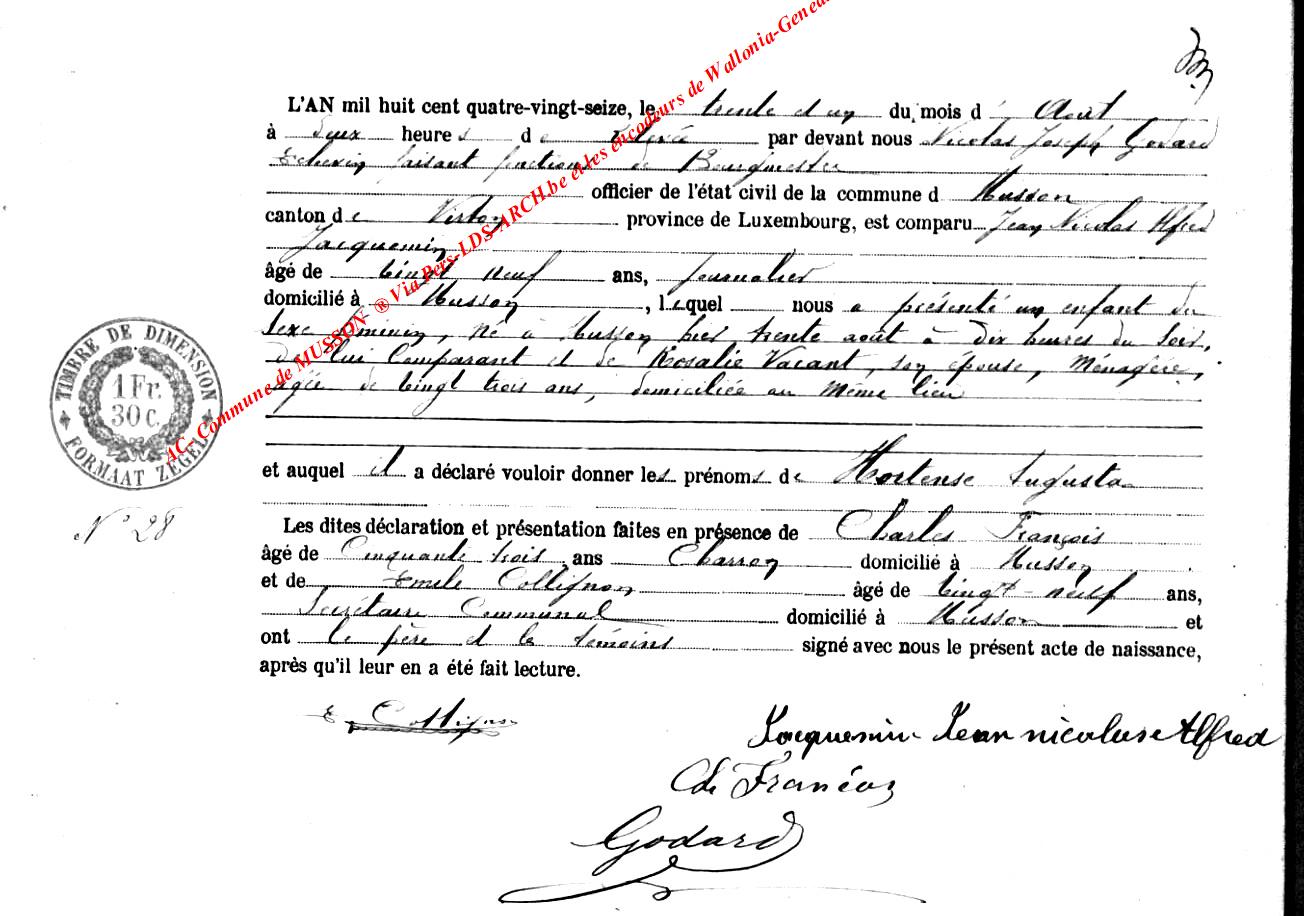 L'AN mil huit cent quatre-vingt-seize, le trente et un du mois d' Août
à deux heures de relevée par devant nous Nicolas Joseph Godard
Echevin faisant fonctions de Bourgmestre
officier de l'état civil de la commune d Musson
canton de Virton province de Luxembourg, est comparu Jean Nicolas Alfred
Jacquemin
âgé de vingt neuf ans, journalier
domicilié à Musson, lequel nous a présenté un enfant du
sexe féminin, né à Musson hier trente août à dix heures du soir,
de lui comparant et de Rosalie Vacant, son épouse, ménagère,
agée de vingt trois ans, domiciliée au même lieu
TIMBRE DE DIMENSION
1 Fr.
30 C.
FORMAAT ZEGEL
et auquel il a déclaré vouloir donner les prénoms de Hortense Augusta
N° 28
Les dites déclaration et présentation faites en présence de Charles François
âgé de cinquante trois ans Charron domicilié à Musson
et de Emile Collignon âgé de vingt-neuf ans,
Secrétaire Communal domicilié à Musson et
ont le père et les témoins signé avec nous le présent acte de naissance,
après qu'il leur en a été fait lecture.
E Collignon
Jacquemin Jean nicolas Alfred
Ch François
Godard
AC- Commune de MUSSON ® Via Pers-LDS-ARCH.be et les encodeurs de Wallonia-Genea